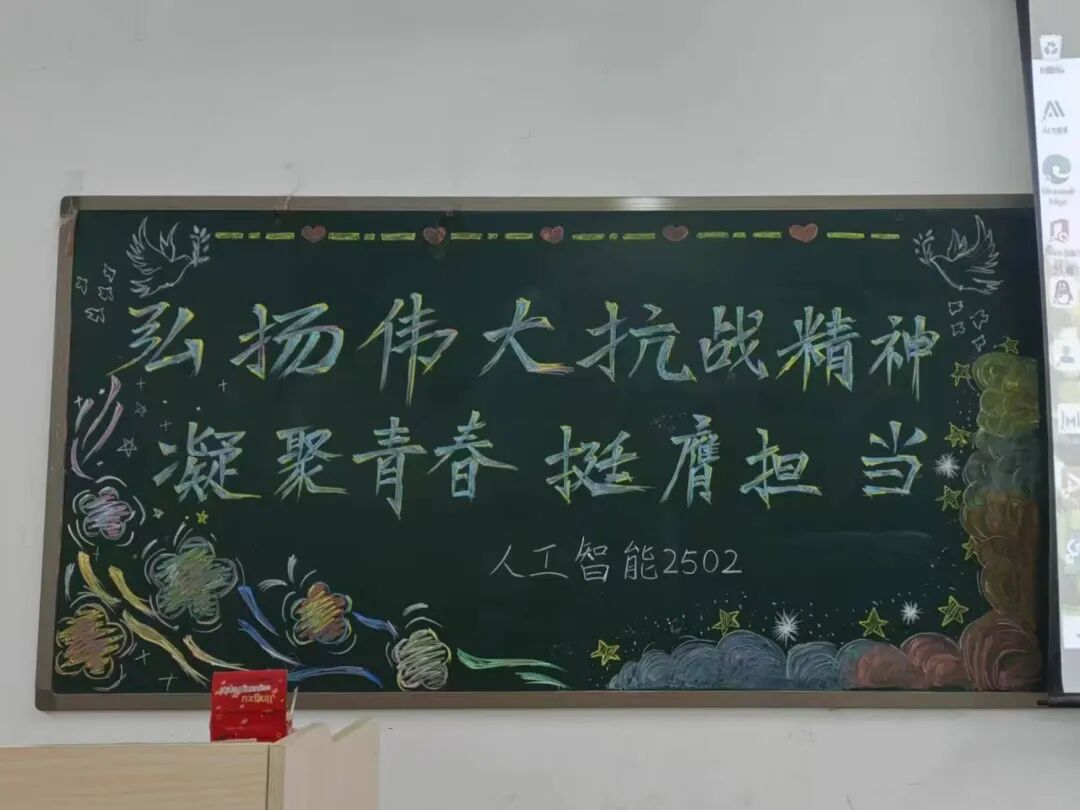 弘扬伟大抗战精神
凝聚青春 挺膺担当
人工智能2502
Jingxu